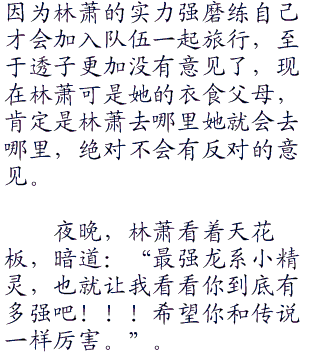 因为林萧的实力强磨练自己
才会加入队伍一起旅行，至
于透子更加没有意见了，现
在林萧可是她的衣食父母，
肯定是林萧去哪里她就会去
哪里，绝对不会有反对的意
见。
夜晚，林萧看着天花
板，暗道：“最强龙系小精
灵，也就让我看看你到底有
多强吧！！！希望你和传说
一样厉害。”。